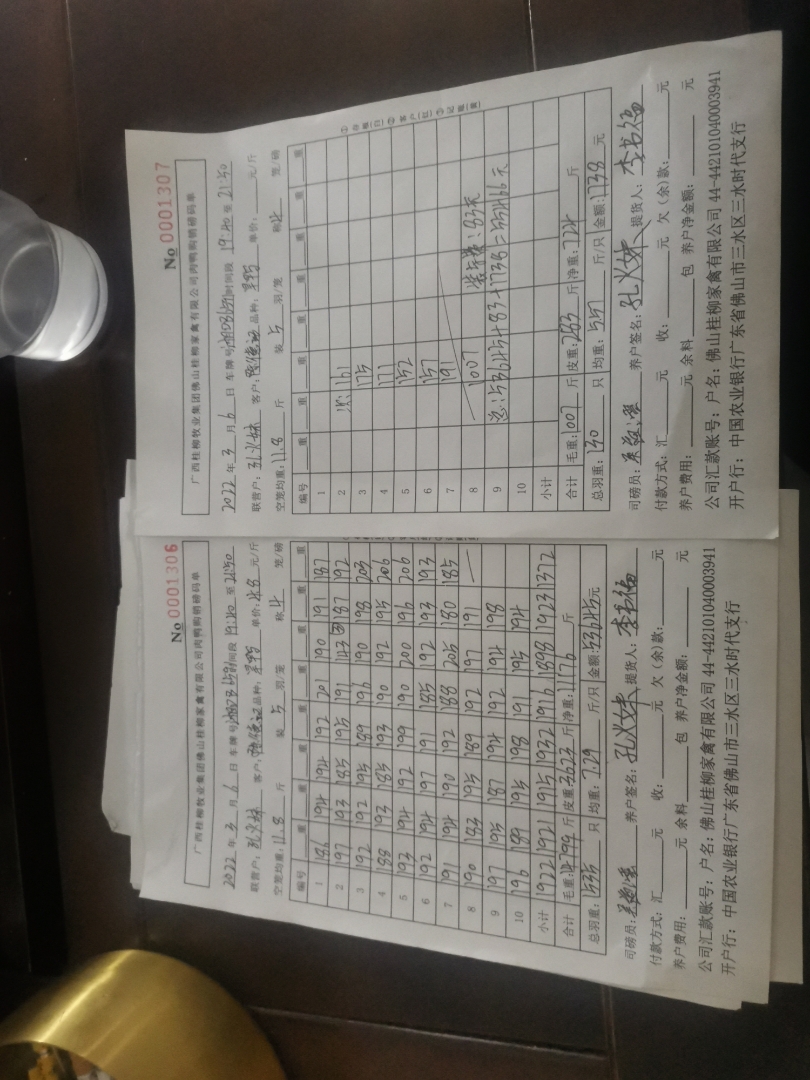 No 0001306
广西桂柳牧业集团佛山桂柳家禽有限公司肉鸭购销磅码单
2022 年 3 月 6 日 车牌号: 时间段 19:40 至 21:50
联营户: 孔火妹 客户: 品种: 单价: 4.8 元/斤
空笼均重: 11.8 斤 装 5 羽/笼 称 4 笼/磅
编号 重 重 重 重 重 重 重 重
1 186 194 194 192 201 190 191 187
2 197 193 185 195 191 143③ 187 192
3 192 192 195 189 196 190 198 203
4 188 193 185 193 190 192 195 206
5 193 194 192 199 190 200 196 206
6 192 194 197 191 185 192 193 193
7 191 194 190 192 188 205 180 185
8 190 183 195 189 192 197 191 —
9 197 195 187 194 192 194 198
10 196 189 195 198 191 195 194
小计 1922 1921 1915 1932 1916 1898 1923 1372
合计 毛重: 斤 皮重: 3623 斤 净重: 11176 斤
总羽重: 1535 只 均重: 7.29 斤/只 金额: 53645 元
司磅员: 养户签名: 孔火妹 提货人: 李书福
付款方式: 汇 元 收: 元 欠(余)款: 元
养户费用: 元 余料 包 养户净金额: 元
公司汇款账号: 户名: 佛山桂柳家禽有限公司 44-442101040003941
开户行: 中国农业银行广东省佛山市三水区三水时代支行
No 0001307
广西桂柳牧业集团佛山桂柳家禽有限公司肉鸭购销磅码单
2022 年 3 月 6 日 车牌号: 时间段 19:40 至 21:50
联营户: 孔火妹 客户: 品种: 单价: 元/斤
空笼均重: 11.8 斤 装 5 羽/笼 称 4 笼/磅
编号 重 重 重 重 重 重 重 重
1
2 次: 161
3 175
4 171
5 152
6 157
7 191
8 — 1007 : 83元
9 总: 53645+83+1738=55466元
10
小计
合计 毛重: 1007 斤 皮重: 283 斤 净重: 724 斤
总羽重: 130 只 均重: 5.57 斤/只 金额: 1738 元
司磅员: 养户签名: 孔火妹 提货人: 李书福
付款方式: 汇 元 收: 元 欠(余)款: 元
养户费用: 元 余料 包 养户净金额: 元
公司汇款账号: 户名: 佛山桂柳家禽有限公司 44-442101040003941
开户行: 中国农业银行广东省佛山市三水区三水时代支行